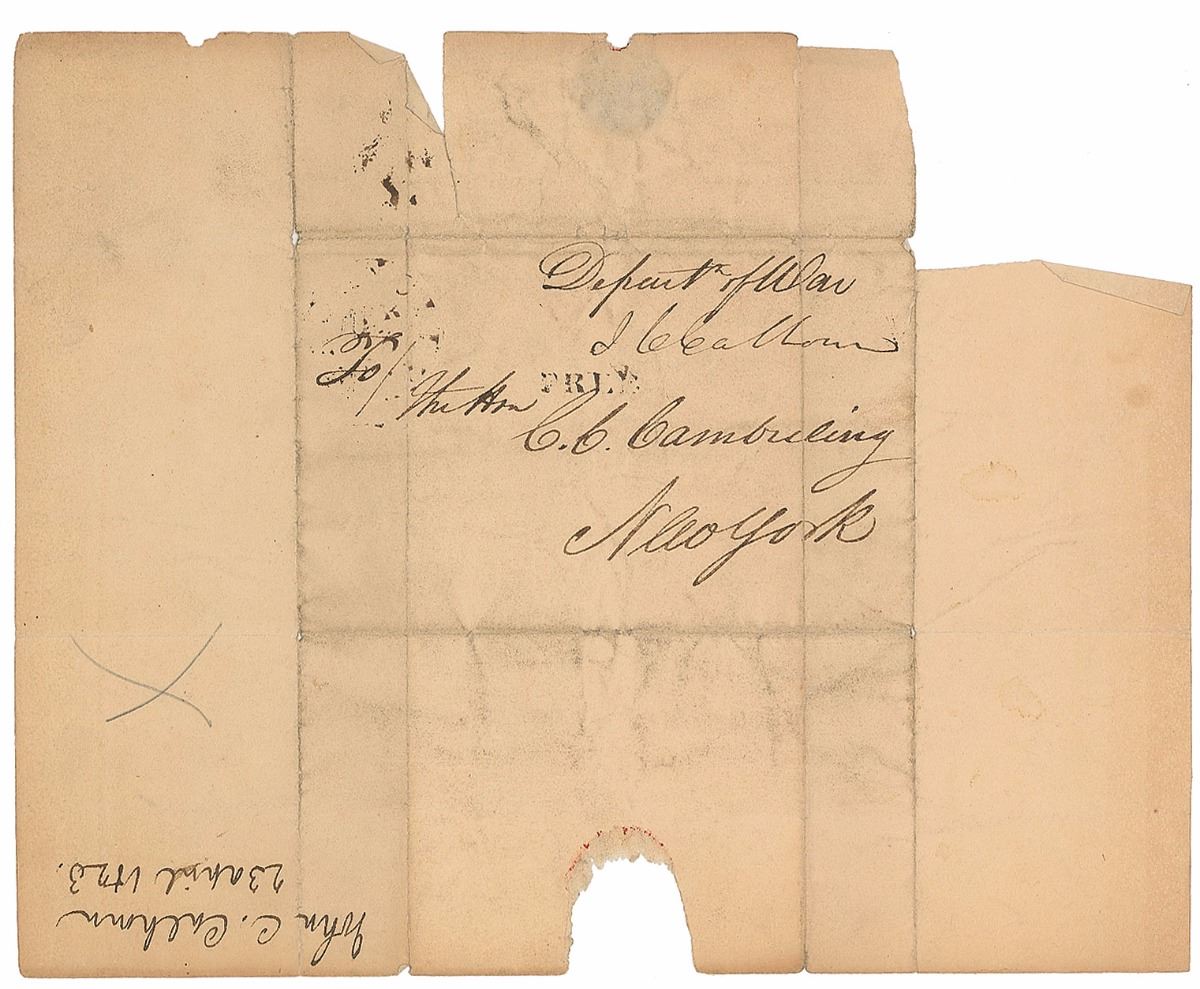 Departmt of War
J C Calhoun
FREE
To/
The Hon
C. C. Cambreleng
New York
John C. Calhoun
23 April 1823.